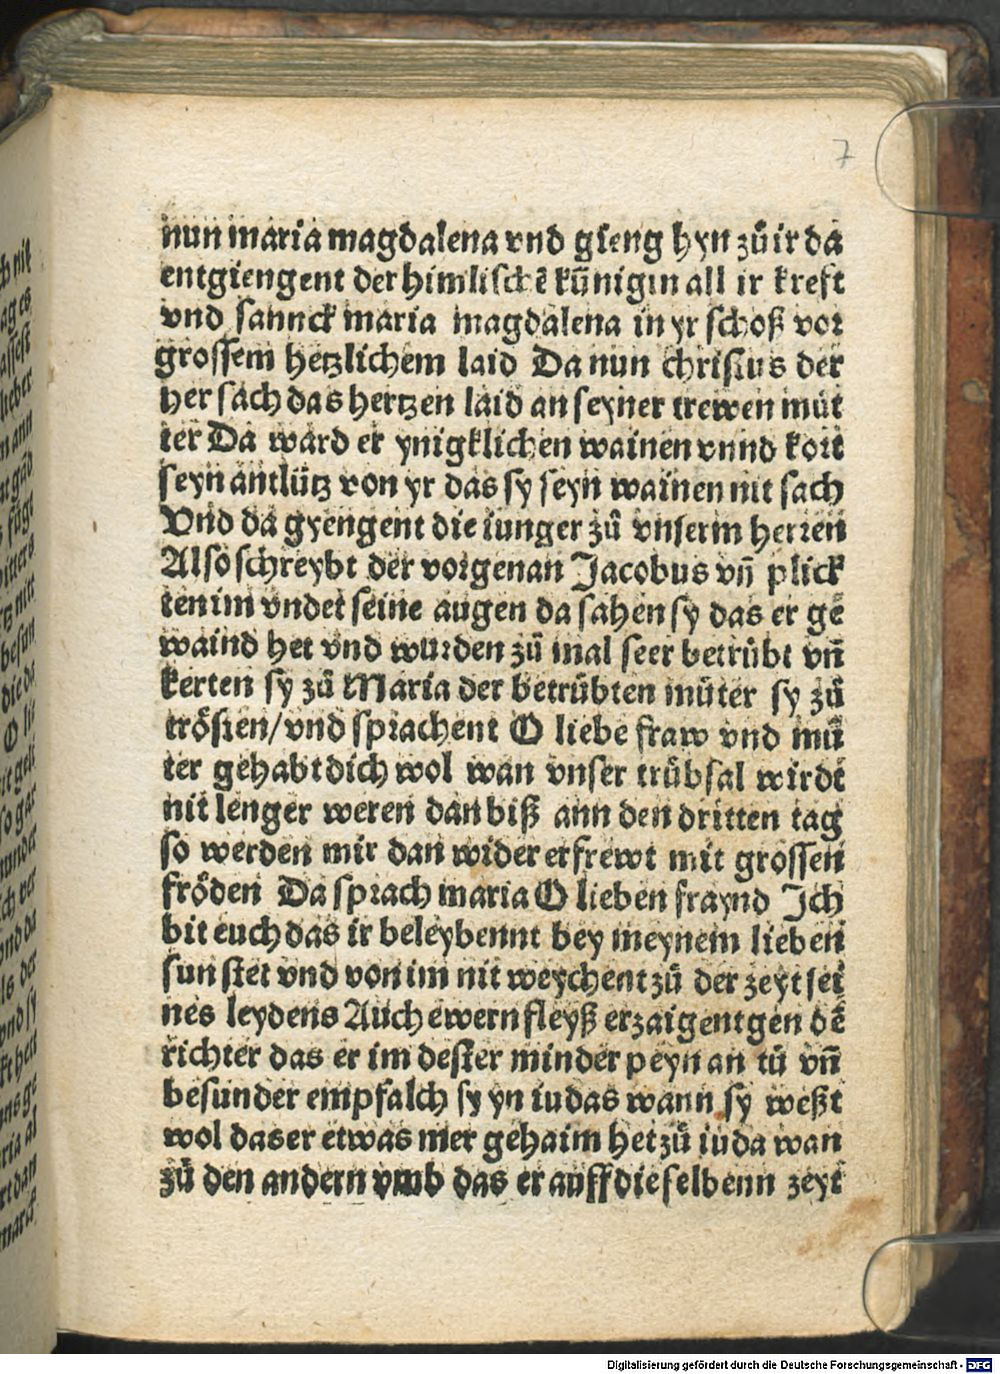 7
nun maria magdalena vnd gieng hyn zů ir da
entgiengent der himlischē kūnigin all ir kreft
vnd sannck maria magdalena in yr schoß vor
grossem hetzlichem laid Da nun christus der
her sach das hertzen laid an seyner trewen můt
ter Da ward er ynigklichen wainen vnnd kort
seyn antlütz von yr das sy seyn wainen nit sach
Vnd da gyengent die iunger zů vnserm herren
Also schreybt der vorgenan Jacobus vn̄ plick
ten im vndet seine augen da sahen sy das er ge
waind het vnd wurden zů mal seer betrübt vn̄
kerten sy zů Maria der betrübten můter sy zů
trösten/vnd sprachent O liebe fraw vnd mů
ter gehabt dich wol wan vnser trübsal wirdt
nit lenger weren dan biß ann den dritten tag
so werden mir dan wider erfrewt mit grossen
fröden Da sprach maria O lieben fraynd Ich
bit euch das ir beleybennt bey meynem lieben
sun stet vnd von im nit weychent zů der zeyt sei
nes leydens Auch ewern fleyß erzaigent gen dē
richter das er im dester minder peyn an tů vn̄
besunder empfalch sy yn iudas wann sy weßt
wol das er etwas mer gehaim het zů iuda wan
zů den andern vmb das er auff die selbenn zeyt
Digitalisierung gefördert durch die Deutsche Forschungsgemeinschaft - DFG